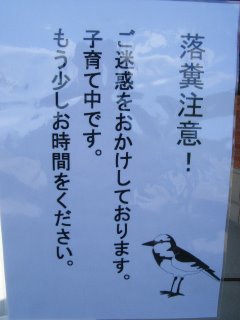 落糞注意！
ご迷惑をおかけしております。
子育て中です。
もう少しお時間をください。